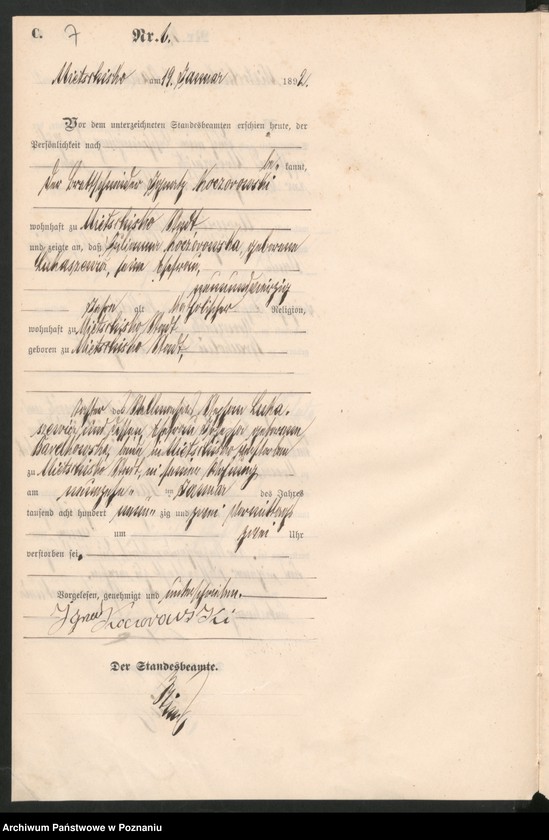 C. 7 Nr. 6.
Mietschisko am 19. Januar 1892.
Vor dem unterzeichneten Standesbeamten erschien heute, der
Persönlichkeit nach
be kannt,
der Brettschneider Ignatz Koczorowski
wohnhaft zu Mietschisko Stadt
und zeigte an, daß Koczorowska, geborene
seine Ehefrau,
neunundvierzig
Jahre alt katholischer Religion,
wohnhaft zu Mietschisko Stadt
geboren zu Mietschisko Stadt,
Tochter des Luka-
und geborene
beide in Mietschisko
zu Mietschisko Stadt, in seiner Wohnung
am neunzehn ten Januar des Jahres
tausend acht hundert neun zig und zwei Vormittags
um zwei Uhr
verstorben sei.
Vorgelesen, genehmigt und unterschrieben.
Koczorowski
Der Standesbeamte.
Archiwum Państwowe w Poznaniu